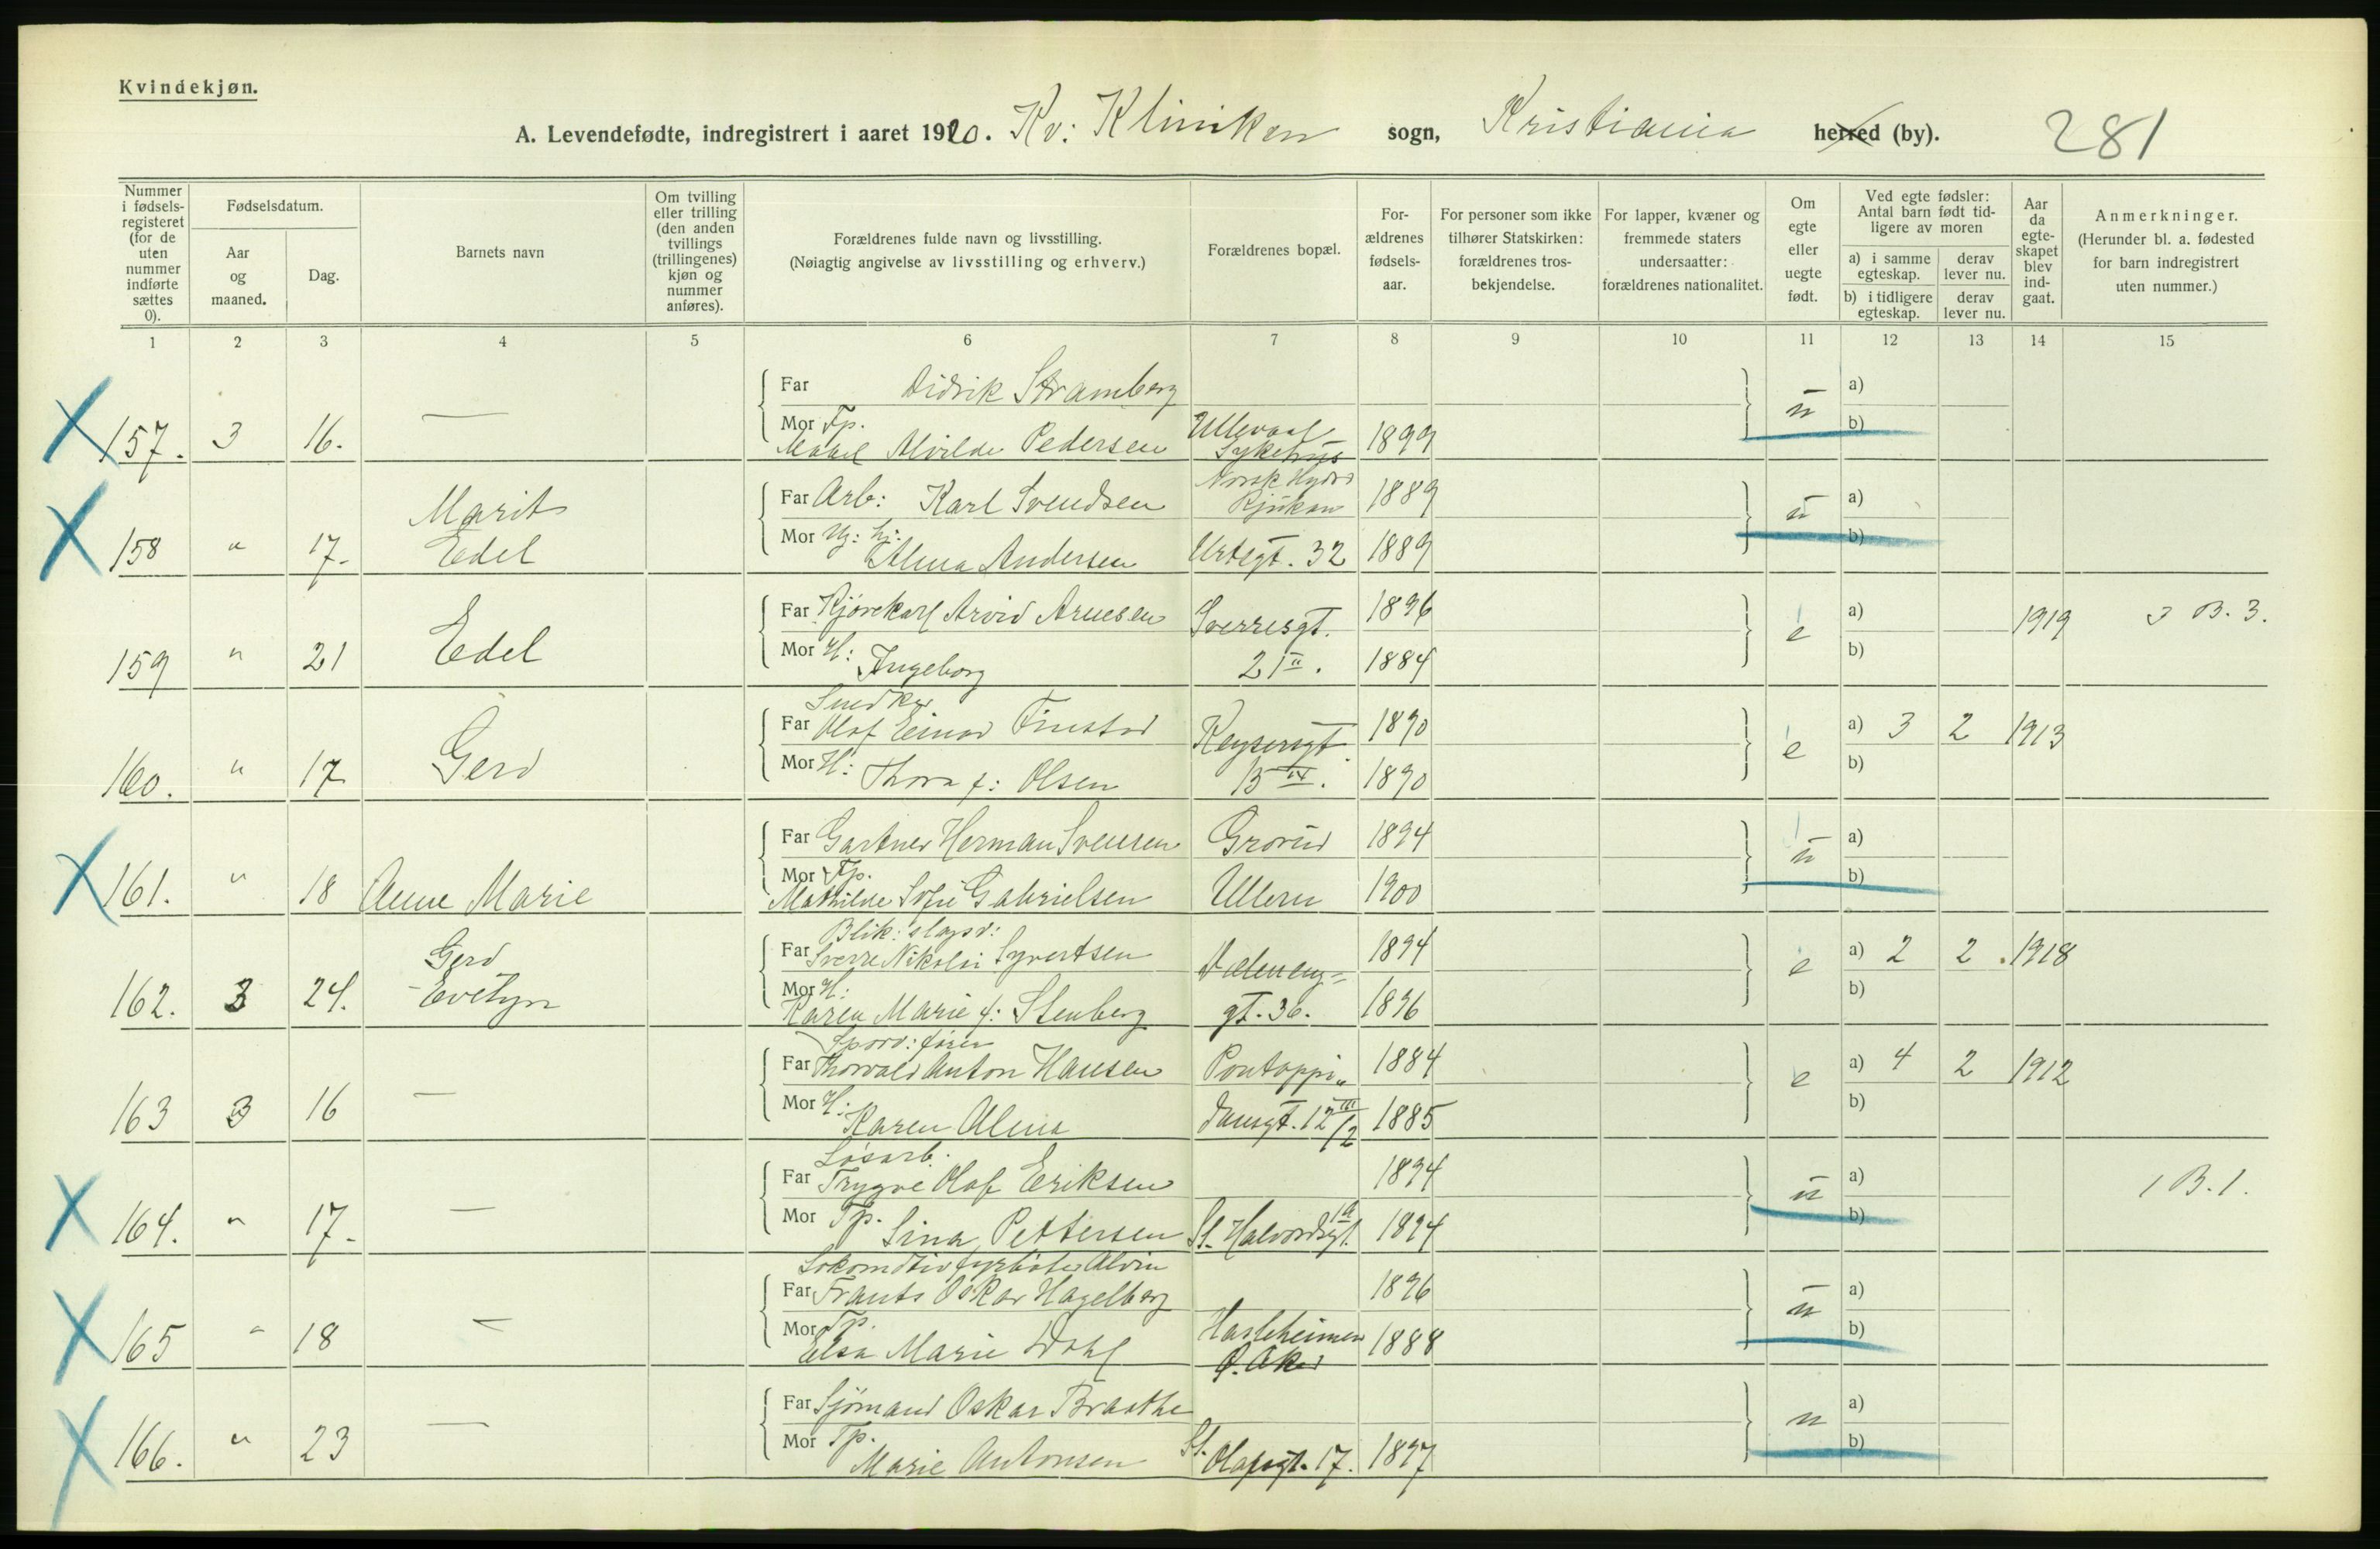 Kvindekjøn.
A. Levendefødte, indregistrert i aaret 1920. Kv: Kliniken sogn, Kristiania herred (by). 281
Nummer i fødsels-registeret (for de uten nummer indførte sættes 0).
Fødselsdatum.
Aar og maaned.
Dag.
Barnets navn
Om tvilling eller trilling (den anden tvillings (trillingenes) kjøn og nummer anføres).
Forældrenes fulde navn og livsstilling.
(Nøiagtig angivelse av livsstilling og erhverv.)
Forældrenes bopæl.
For-ældrenes fødsels-aar.
For personer som ikke tilhører Statskirken: forældrenes tros-bekjendelse.
For lapper, kvæner og fremmede staters undersaatter: forældrenes nationalitet.
Om egte eller uegte født.
Ved egte fødsler: Antal barn født tid-ligere av moren
a) i samme egteskap.
derav lever nu.
b) i tidligere egteskap.
derav lever nu.
Aar da egte-skapet blev ind-gaat.
Anmerkninger.
(Herunder bl. a. fødested for barn indregistrert uten nummer.)
1 2 3 4 5 6 7 8 9 10 11 12 13 14 15
Far Didrik Stramberg
a)
157. 3 16. — Mor Tp. Alvilde Pedersen Ullevaal Sykehus 1899 u b)
Far Arb: Karl Svendsen Norsk Hydro Rjukan 1889
a)
158 " 17. Marit Edel Mor Alma Andersen Urtegt. 32 1889 u b)
Far Kjørekarl Arvid Arnesen Sverresgt. 1896
a) 1919 3 B. 3.
159 " 21 Edel Mor H: Ingeborg 21 II. 1884 e b)
Snedker
Far Olaf Einar Finstad Keysersgt. 1890
a) 3 2 1913
160. " 17 Gerd Mor H: Thora f: Olsen 1890 e b)
Far Gartner Herman Svensen Grorud 1894
a)
161. " 18 Anne Marie Mor Tp. Mathilde Sofie Gabrielsen Ullern 1900 u b)
Blik: slagsv:
Far Sverre Nikolai Syvertsen 1894
a) 2 2 1918
162. 3 24. Gerd Evelyn Mor H: Karen Marie f: Stenberg gt. 36. 1896 e b)
Sporv: fører
Far Thorvald Anton Hansen Pontoppi„ 1884
a) 4 2 1912
163 3 16 — Mor H: Karen Alma dansgt. 12 III/2 1885 e b)
Løsarb.
Far Trygve Olaf Eriksen 1894
a) 1 B. 1.
164. " 17. — Mor Tp. Sina Pettersen St. Halvordsgt. 1894 u b)
Lokomotivfyrbøter Alvin
Far Frants Oskar Hagelberg 1896
a)
165 " 18 — Mor Tp. Elsa Marie Dahl Hasleheimen Ø. Aker 1888 u b)
Far Sjømand Oskar Braathe
a)
166. " 23 — Mor Tp. Marie Antonsen St. Olafsgt. 17. 1897 u b)